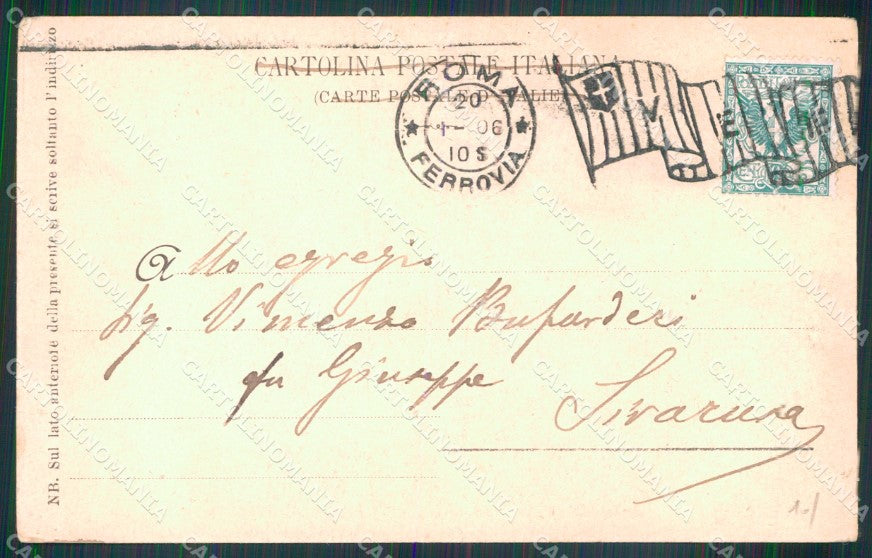 CARTOLINA POSTALE ITALIANA
(CARTE POSTALE D'ITALIE)
ROMA
20
1-06
10S
★ FERROVIA ★
V E III
NB. Sul lato anteriore della presente si scrive soltanto l'indirizzo
Allo egregio
Sig. Vincenzo Bufardeci
fu Giuseppe
Siracusa
CARTOLINOMANIA